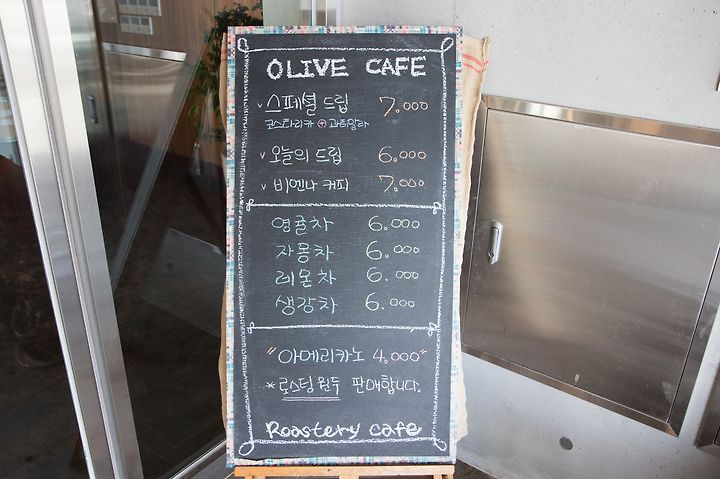 OLIVE CAFE
스페셜 드립 7,000
코스타리카 + 과테말라
오늘의 드립 6.000
비엔나 커피 7,000
영귤차 6.000
자몽차 6.000
레몬차 6.000
생강차 6.000
"아메리카노 4,000"
*로스팅 원두 판매합니다.
Roastery cafe